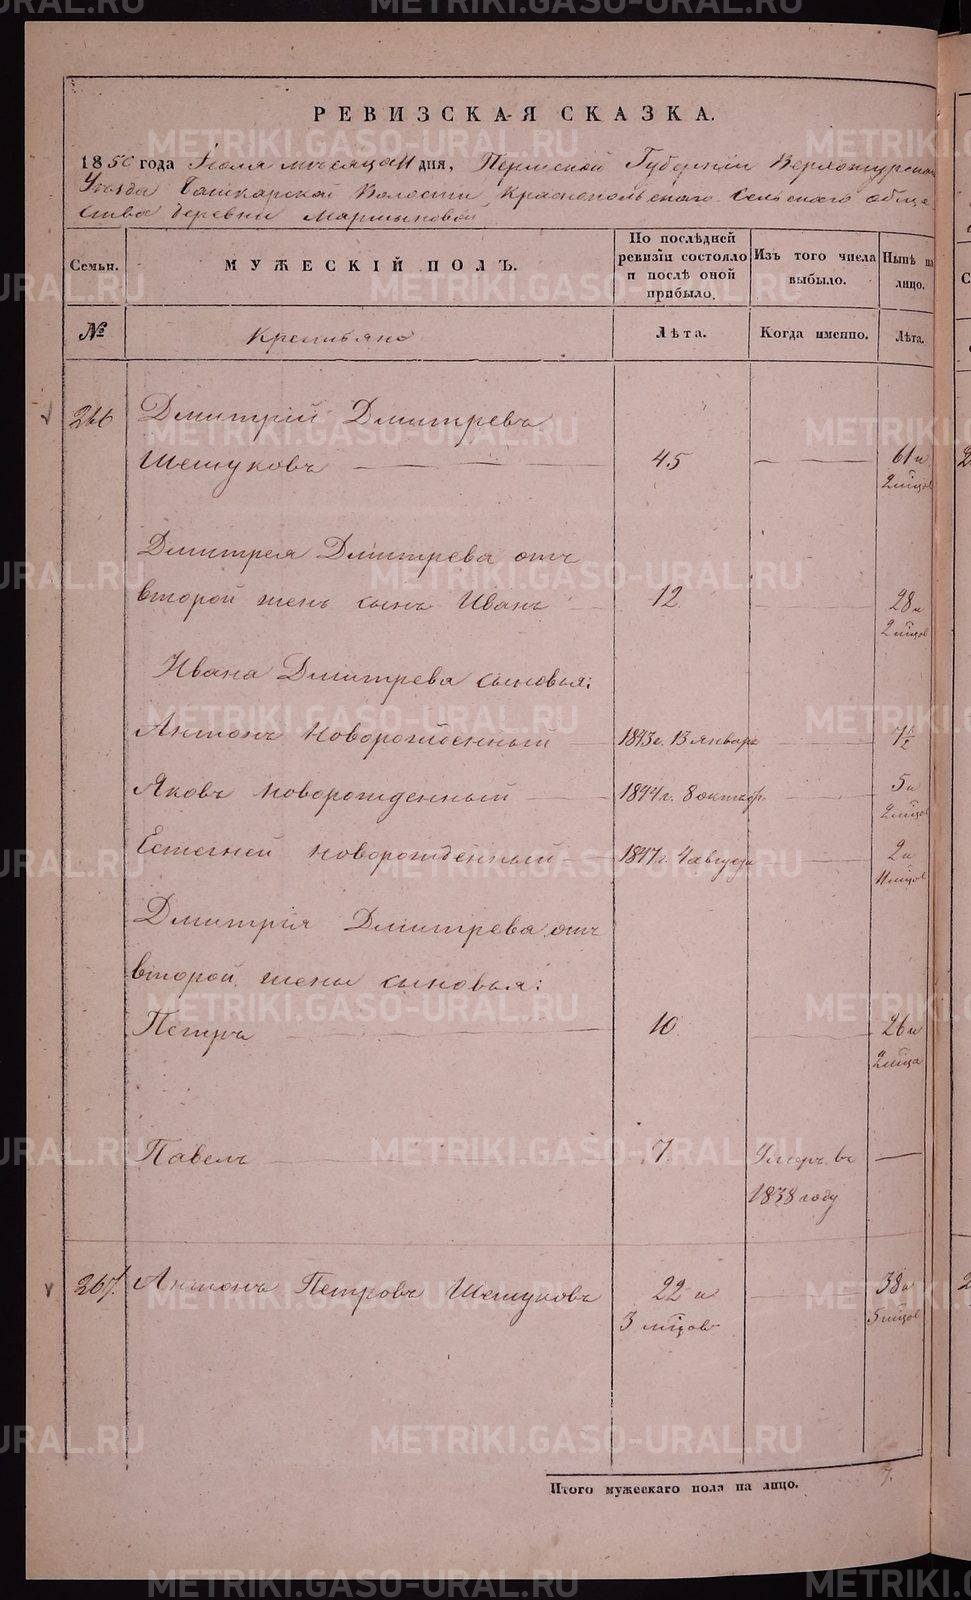 РЕВИЗСКАЯ СКАЗКА.
1850 года Июля месяца 11 дня, Пермской Губернии Верхотурскаго
Уѣзда Башкарской Волости, Краснопольскаго Сельскаго обще
ства деревни Мартыновой
Семьи.
МУЖЕСКІЙ ПОЛЪ.
По послѣдней ревизіи состояло и послѣ оной прибыло.
Изъ того числа выбыло.
Нынѣ на лицо.
№
Крестьяне
Лѣта.
Когда именно.
Лѣта.
266 Дмитрій Дмитревъ
Шешуковъ 45 61 и
2 м̃цов
Дмитрея Дмитрева отъ
второй жены сынъ Иванъ 12. 28 и
2 м̃цов
Ивана Дмитрева сыновья:
Антонъ новорожденный 1843 г. 13 января 7 ½
Яковъ новорожденный 1844 г. 8 октяб. 5 и
2 м̃цов
Естегней новорожденный 1847 г. 4 августа 2 и
11 м̃цов
Дмитрія Дмитрева отъ
второй жены сыновья:
Петръ 10 26 и
2 м̃ца
Павелъ 7. Умеръ въ —
1838 году
267. Антонъ Петровъ Шешуковъ 22 и 38 и
3 м̃цов 5 м̃цов
Итого мужескаго пола на лицо. 7.
METRIKI.GASO-URAL.RU